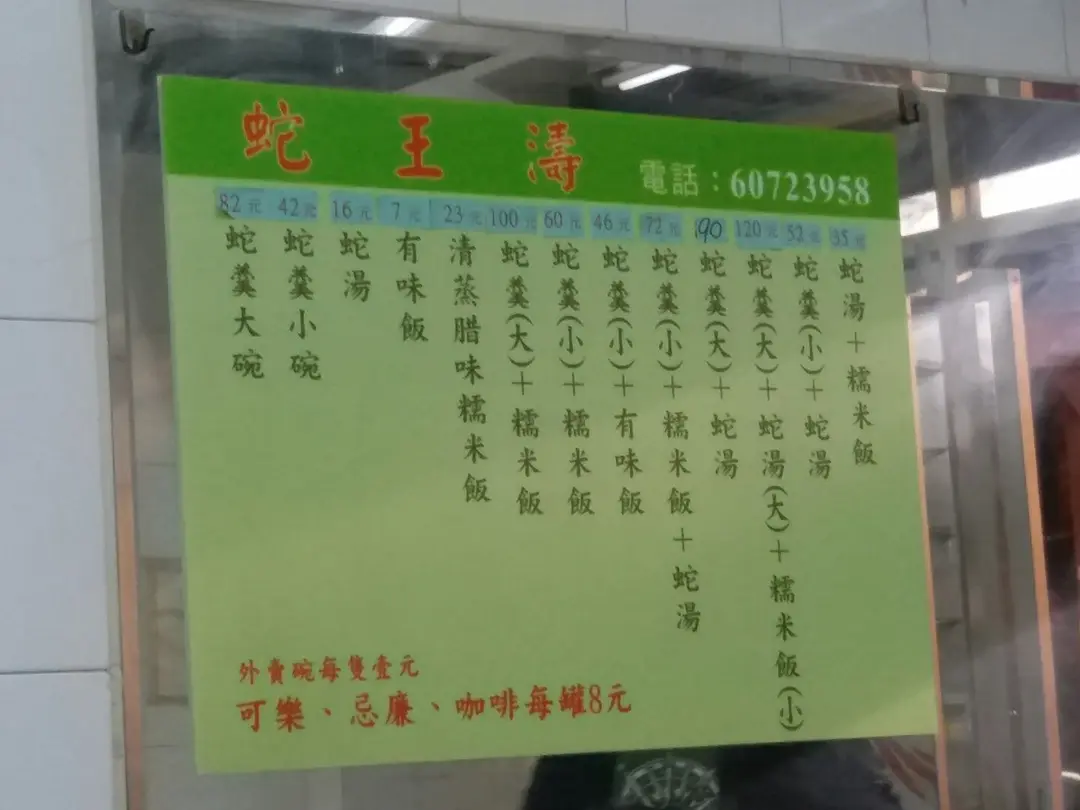 蛇王濤
電話：60723958
35元 蛇湯＋糯米飯
52元 蛇羹(小)＋蛇湯
120元 蛇羹(大)＋蛇湯(大)＋糯米飯(小)
90 蛇羹(大)＋蛇湯
72元 蛇羹(小)＋糯米飯＋蛇湯
46元 蛇羹(小)＋有味飯
60元 蛇羹(小)＋糯米飯
100元 蛇羹(大)＋糯米飯
23元 清蒸腊味糯米飯
7元 有味飯
16元 蛇湯
42元 蛇羹小碗
82元 蛇羹大碗
外賣碗每隻壹元
可樂、忌廉、咖啡每罐8元